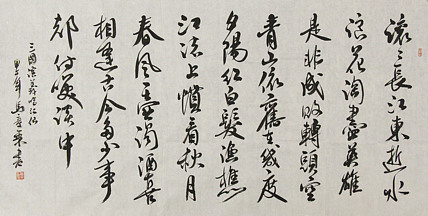 滚〻長江東逝水
浪花淘盡英雄
是非成敗轉頭空
青山依舊在幾度
夕陽紅白髮漁樵
江渚上慣看秋月
春風一壺濁酒喜
相逢古今多少事
都付笑談中
三國演義
甲午年